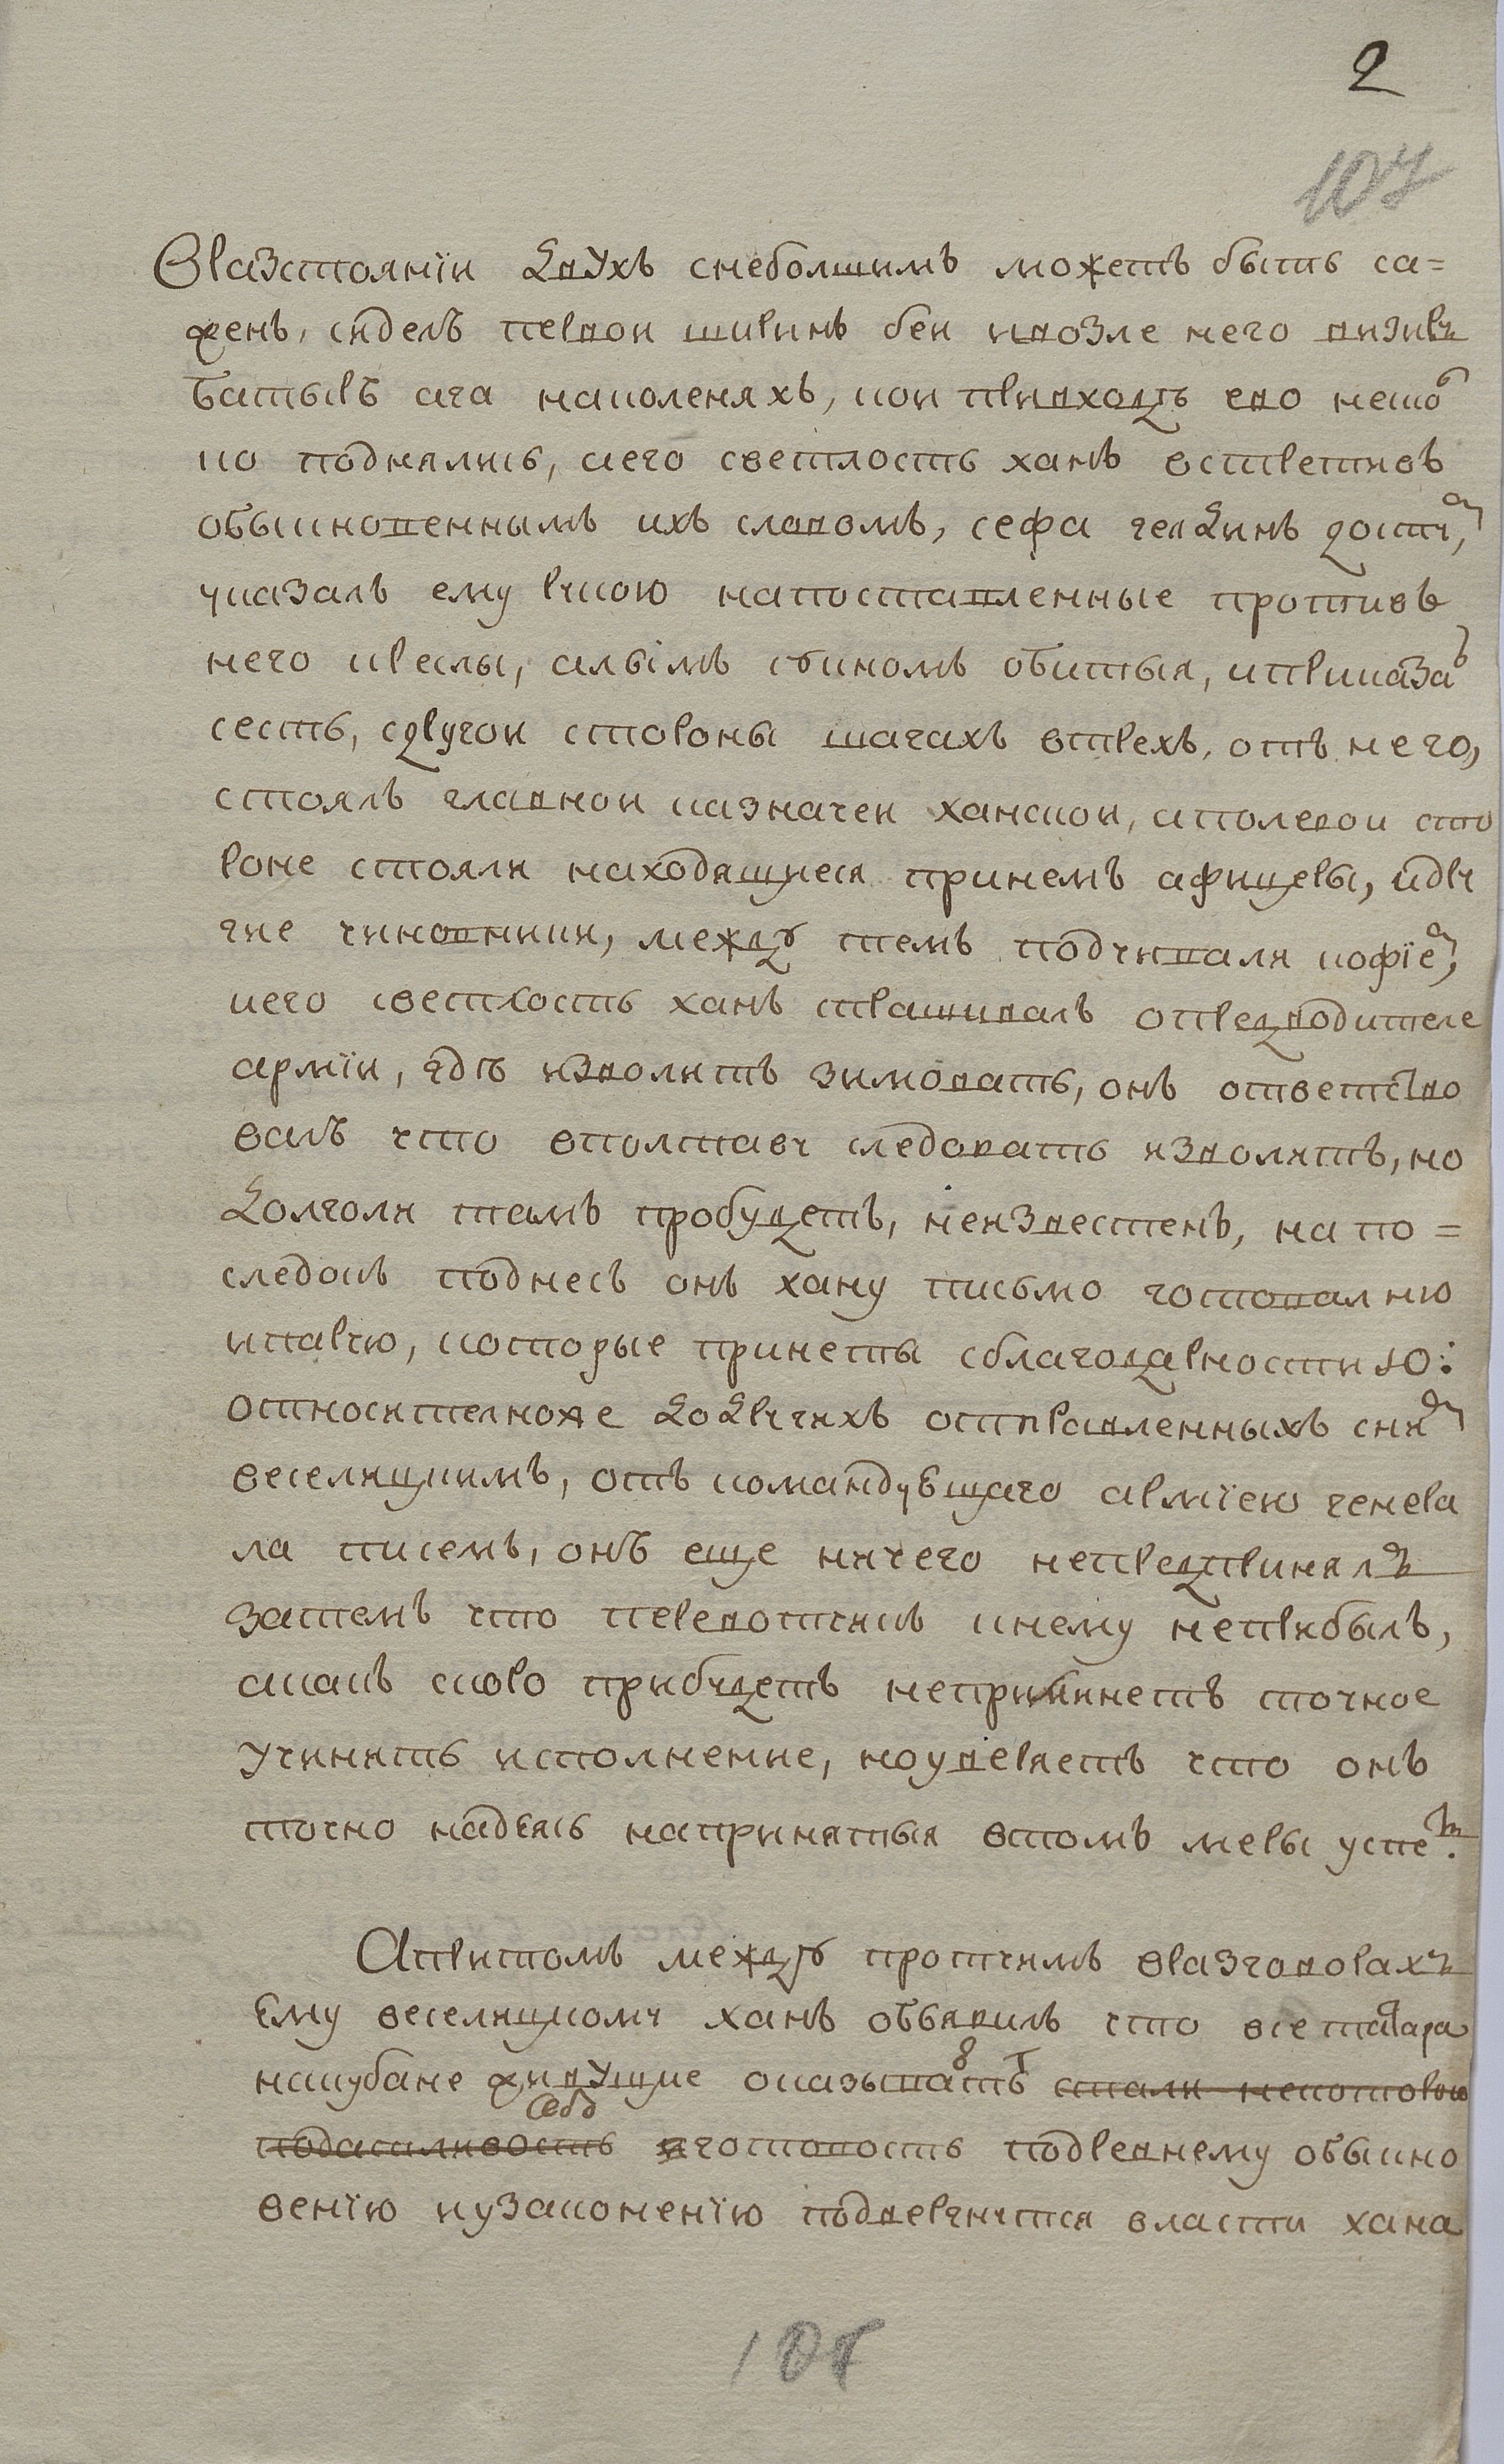 2
107
Вразстоянїи двухъ снебольшимъ можетъ быть са=
жень, сиделъ первои ширинъ беи ивозле него визирь
батырь ага наколеняхъ, кои приходъ ево нешо
ко поднялись, иего светлость ханъ встретивъ
обыкновеннымъ ихъ словомъ, сефа гелдинъ достъ,
указалъ ему рукою напоставленные противъ
него креслы, алымъ сукномъ обитыя, иприказавъ
сесть, сдругои стороны шагахъ втрехъ, отъ него,
стоялъ главнои казначеи ханскои, аполевои сто
роне стояли находящиеся принемъ афицеры, идру
гие чиновники, между темъ подчивали кофїем,
иего светлость ханъ спрашивалъ опредводителе
армїи, гдѣ изволитъ зимовать, онъ ответство
валъ что вполтаву следовать изволитъ, но
долголи тамъ пробудетъ, неизвестенъ, на по=
следокъ поднесъ онъ хану письмо готовалню
ипарчю, которые принеты сблагодарностию:
относителноже додругихъ отправленныхъ сним
веселицкимъ, отъ командующаго армїею генера
ла писемъ, онъ еще ничего непредпринялъ
затемъ что переводчикъ кнему неприбылъ,
акакъ скоро прибудетъ непреминетъ точное
учинить исполнение, иоуверяетъ что онъ
точно надѣясь напринятыя втомъ меры успеть.
Апритомъ между протчимъ вразговорахъ
ему веселицкому ханъ объявилъ что все татара
накубане живущие оказывают стали некоторую
себя
подасливость иготовость попрежнему обыкно
венїю иузаконенїю подвергнутся власти хана
108